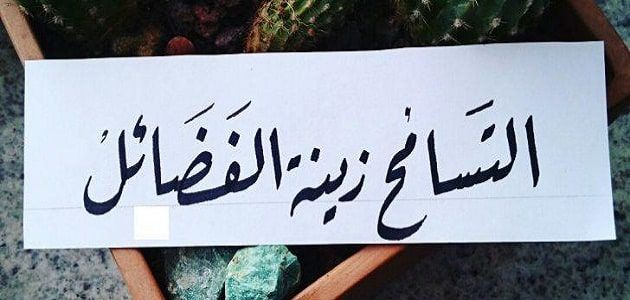 التسَامُح زينة الفَضَائلُ